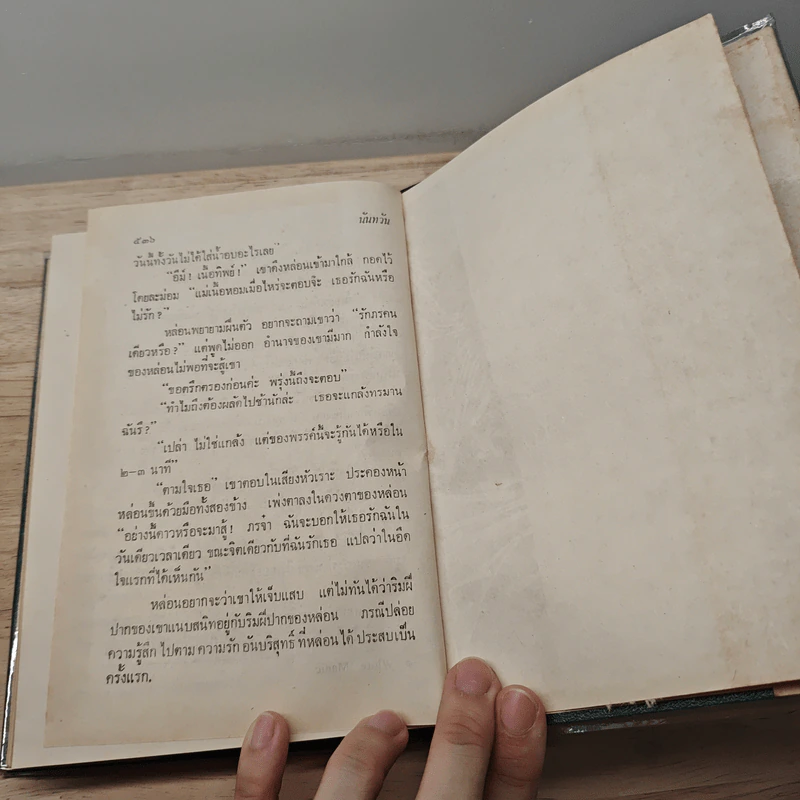 ๕๓๖
นันทวัน
วันนี้ทั้งวันไม่ได้ใส่น้ำอบอะไรเลย”
“อืม์! เนื้อทิพย์!” เขาดึงหล่อนเข้ามาใกล้ กอดไว้
โดยละม่อม “แม่เนื้อหอมเมื่อไหร่จะตอบจ๊ะ เธอรักฉันหรือ
ไม่รัก?”
หล่อนพยายามฝืนตัว อยากจะถามเขาว่า “รักภรคน
เดียวหรือ?” แต่พูดไม่ออก อำนาจของเขามีมาก กำลังใจ
ของหล่อนไม่พอที่จะสู้เขา
“ขอตรึกตรองก่อนค่ะ พรุ่งนี้ถึงจะตอบ”
“ทำไมถึงต้องผลัดไปช้านักล่ะ เธอจะแกล้งทรมาน
ฉันรึ?”
“เปล่า ไม่ใช่แกล้ง แต่ของพรรค์นี้จะรู้กันได้หรือใน
๒–๓ นาที”
“ตามใจเธอ” เขาตอบในเสียงหัวเราะ ประคองหน้า
หล่อนขึ้นด้วยมือทั้งสองข้าง เพ่งตาลงในดวงตาของหล่อน
“อย่างนี้ดาวหรือจะมาสู้! ภรจ๋า ฉันจะบอกให้เธอรักฉันใน
วันเดียวเวลาเดียว ขณะจิตเดียวกับที่ฉันรักเธอ แปลว่าในอึด
ใจแรกที่ได้เห็นกัน”
หล่อนอยากจะว่าเขาให้เจ็บแสบ แต่ไม่ทันได้ว่าริมฝี
ปากของเขาแนบสนิทอยู่กับริมฝีปากของหล่อน ภรณีปล่อย
ความรู้สึก ไปตาม ความรัก อันบริสุทธิ์ ที่หล่อน ได้ ประสบ เป็น
ครั้งแรก.